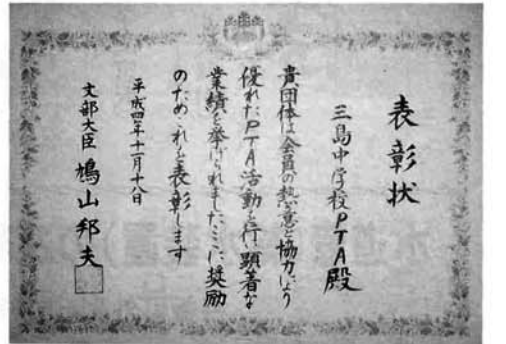 表彰状
三島中学校PTA殿
貴団体は会員の熱意と協力により
優れたPTA活動を行い顕著な
業績を挙げられましたここに奨励
のためこれを表彰します
平成四年十一月十八日
文部大臣 鳩山邦夫